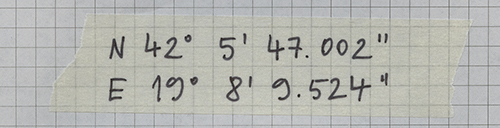 N 42° 5' 47.002"
E 19° 8' 9.524"